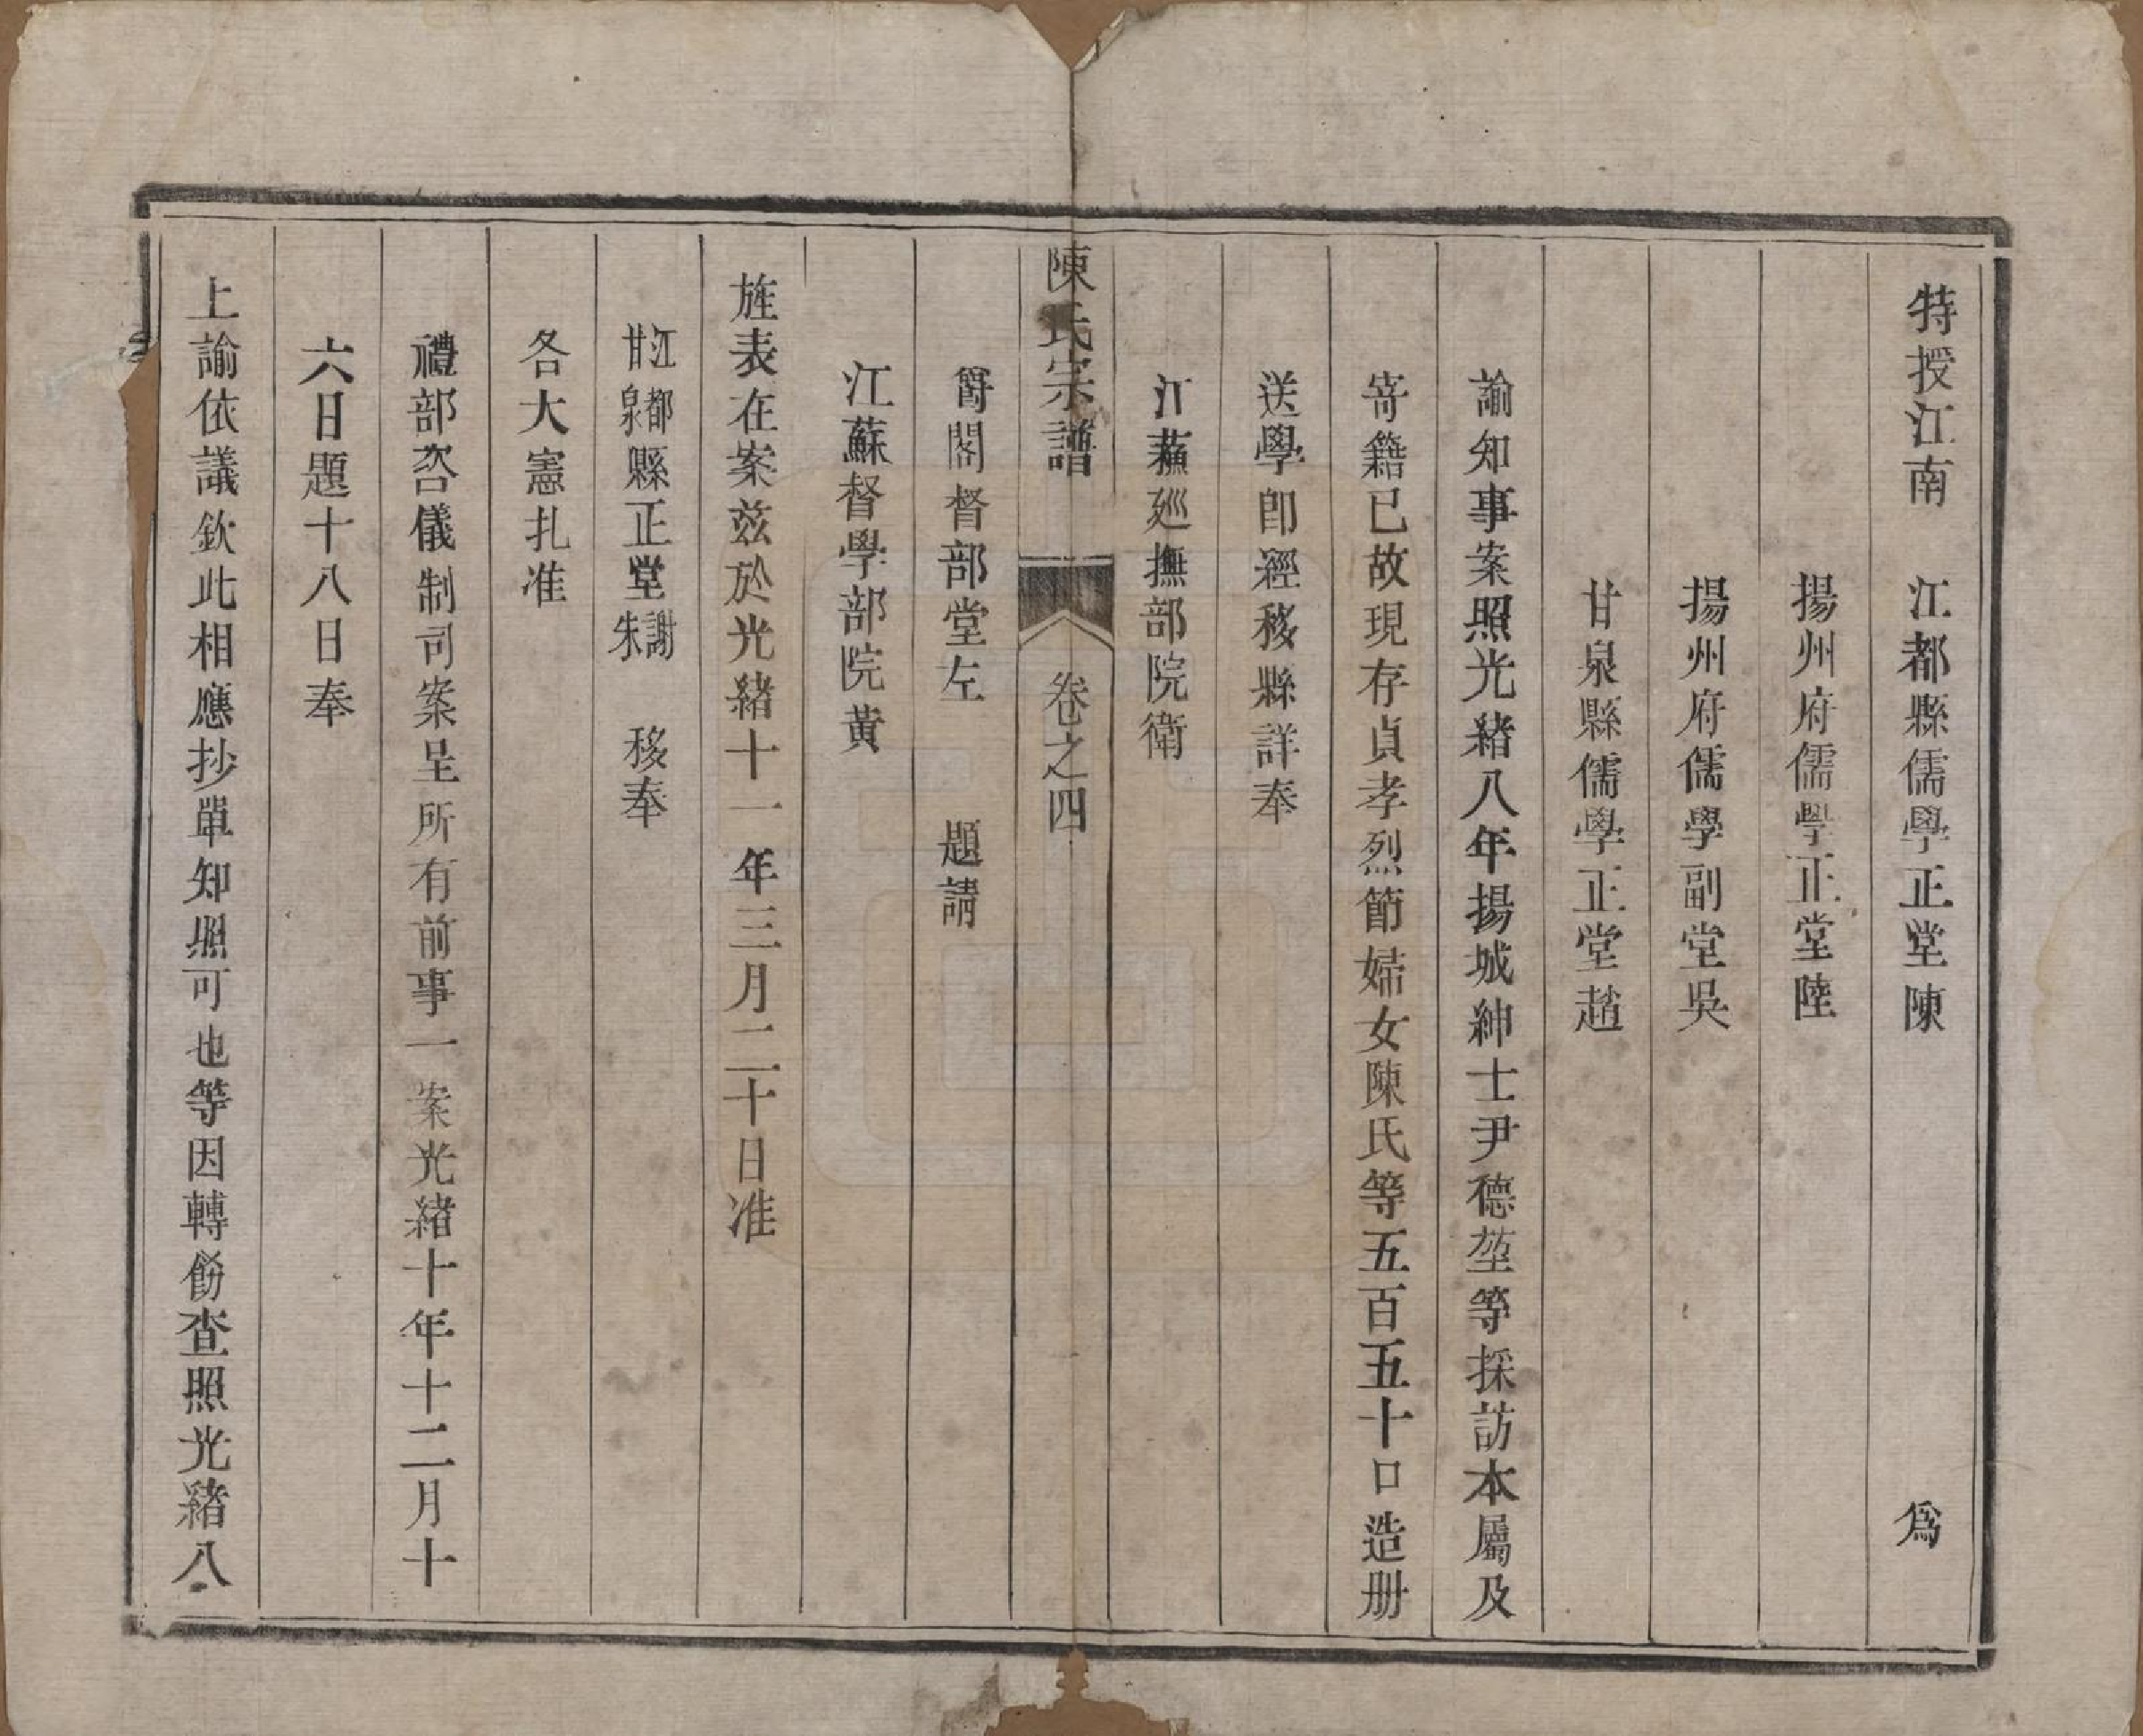 特授江南　江都縣儒學正堂陳　爲
揚州府儒學正堂陸
揚州府儒學副堂吳
甘泉縣儒學正堂趙
諭知事案照光緒八年揚城紳士尹德堃等採訪本屬及
寄籍已故現存貞孝烈節婦女陳氏等五百五十口造册
送學卽經移縣詳奉
江蘇廵撫部院衛
陳氏宗譜　卷之四
爵閣督部堂左　題請
江蘇督學部院黃
旌表在案茲於光緒十一年三月二十日准
江都甘泉縣正堂謝朱　移奉
各大憲扎准
禮部咨儀制司案呈所有前事一案光緒十年十二月十
六日題十八日奉
上諭依議欽此相應抄單知照可也等因轉飭查照光緒八